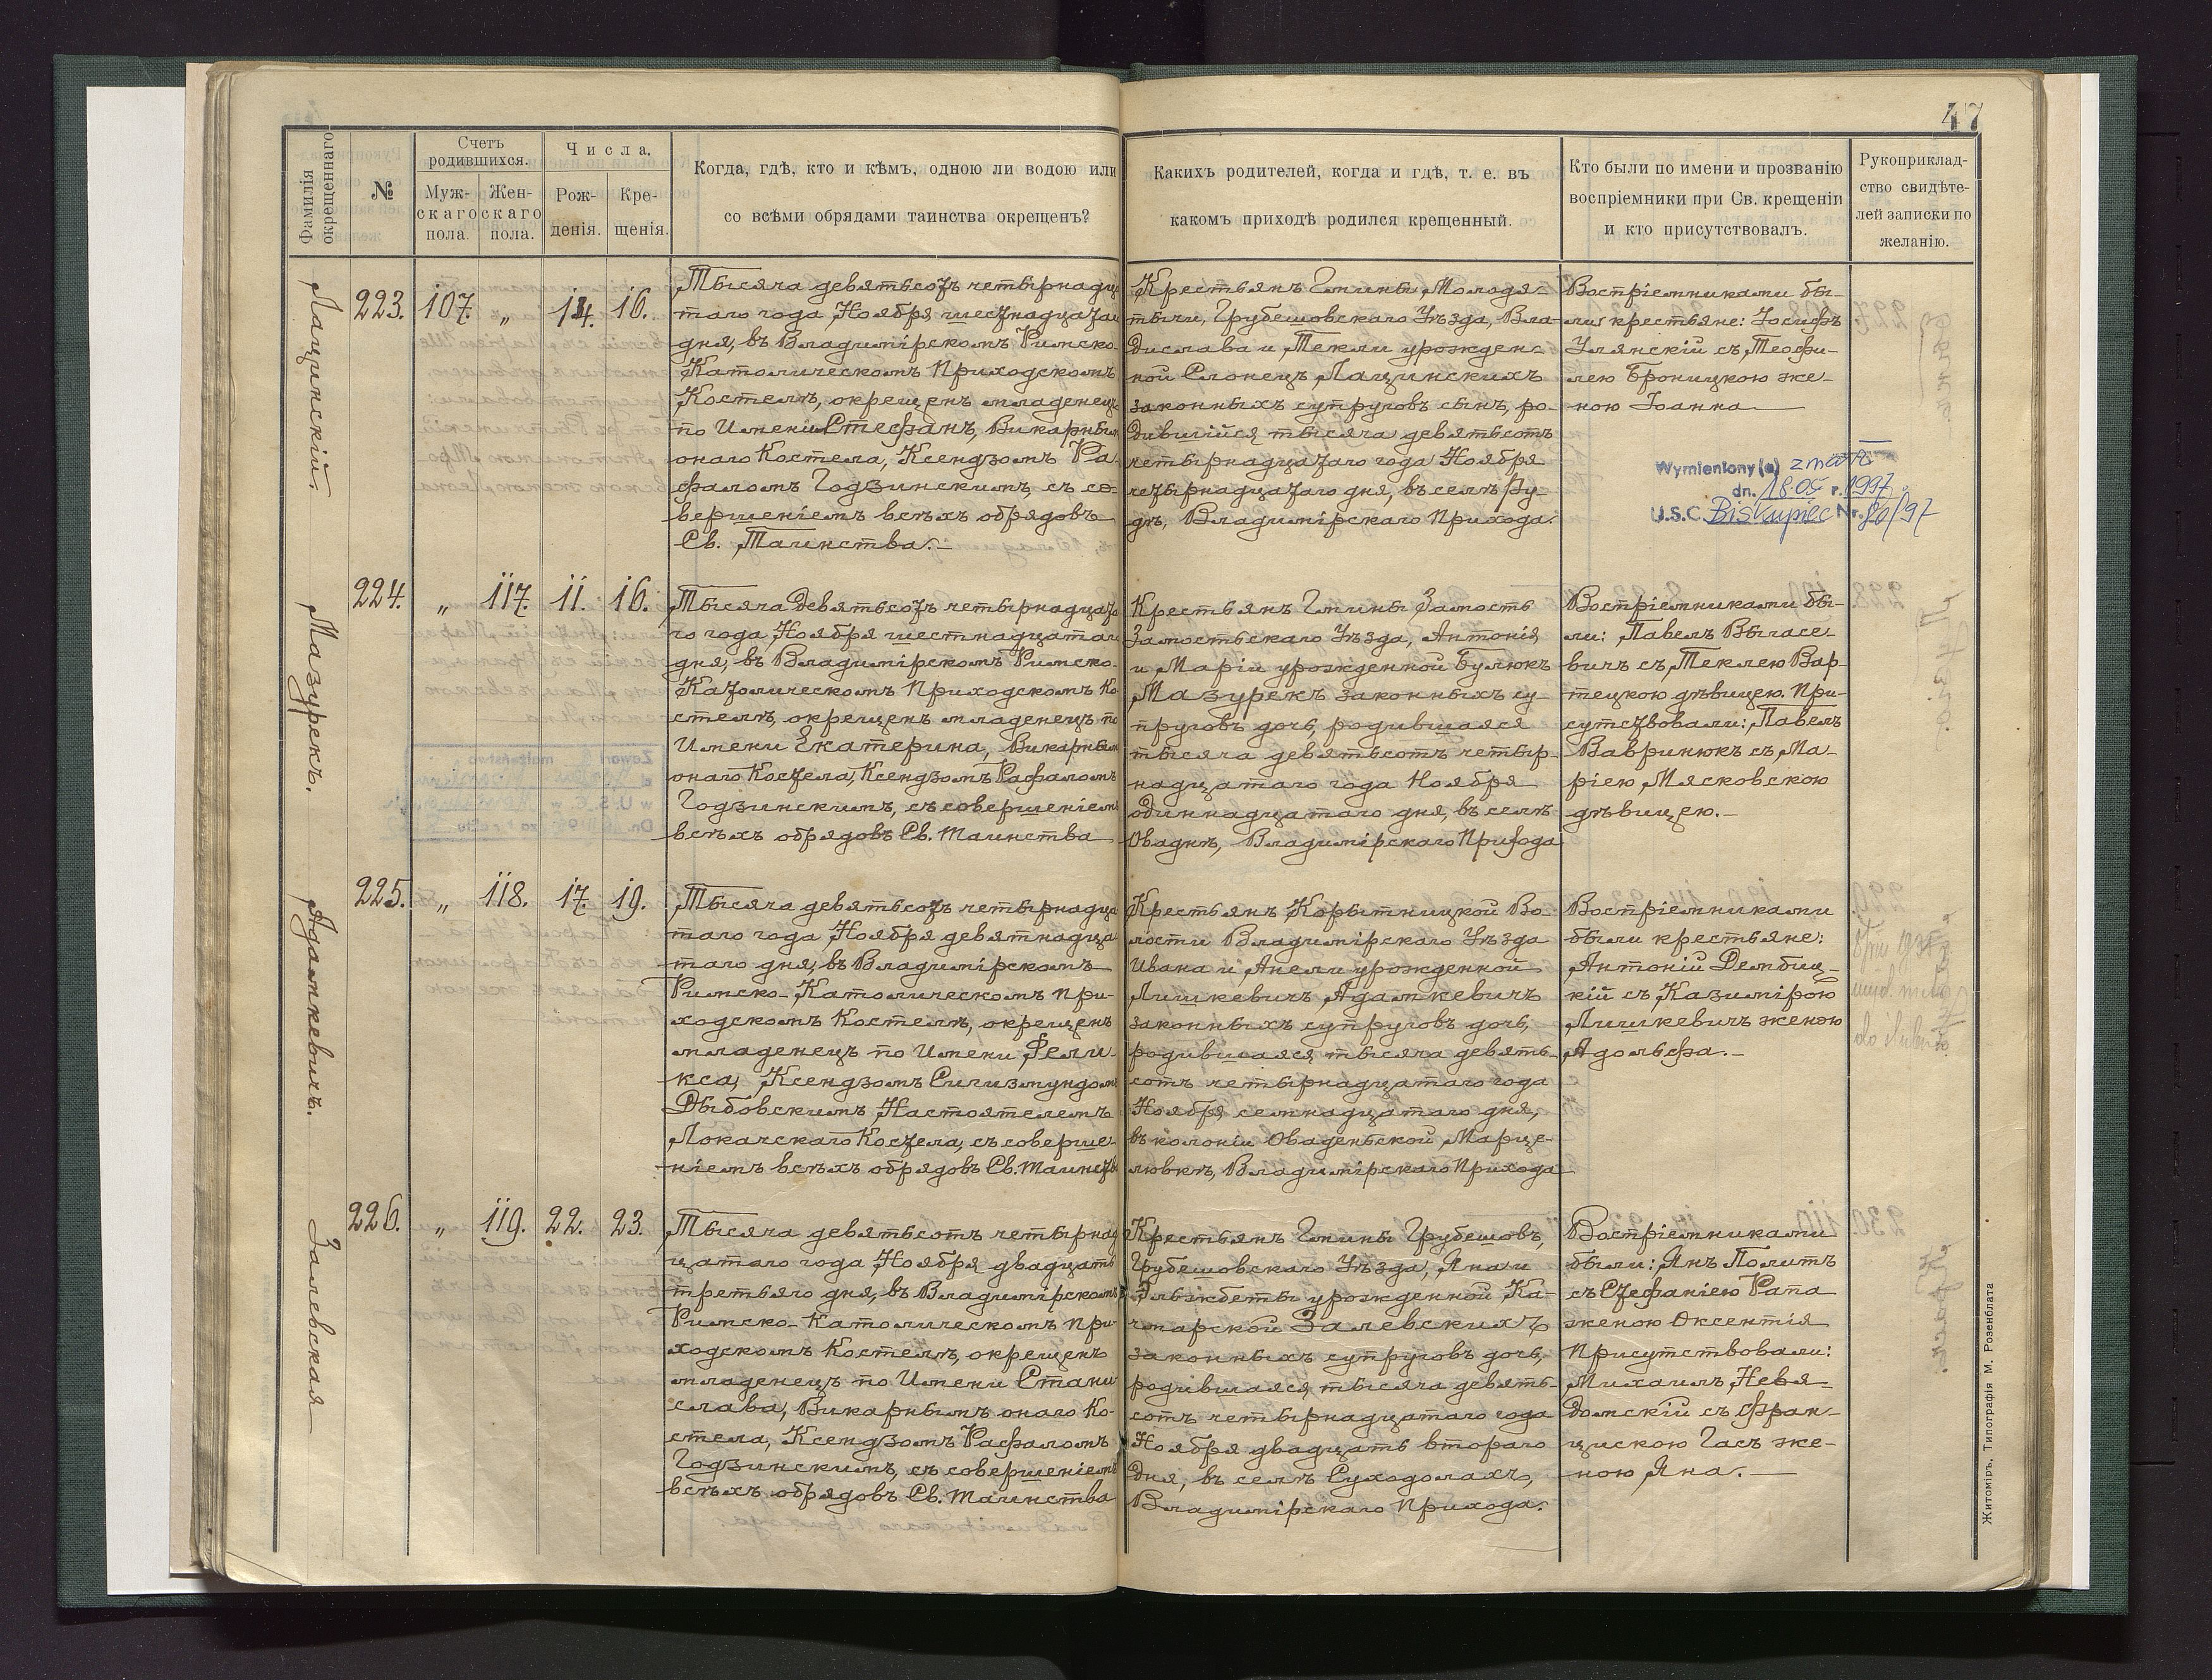 47
Фамилія окрещеннаго
№
Счетъ родившихся.
Муж-
скаго
пола.
Жен-
скаго
пола.
Числа.
Рож-
денія.
Кре-
щенія.
Когда, гдѣ, кто и кѣмъ, одною ли водою или
со всѣми обрядами таинства окрещенъ?
Какихъ родителей, когда и гдѣ, т. е. въ
какомъ приходѣ родился крещенный.
Кто были по имени и прозванію
воспріемники при Св. крещеніи
и кто присутствовалъ.
Рукоприклад-
ство свидѣте-
лей записки по
желанію.
Лацинскій.
223. 107. „ 14. 16.
Тысяча девятьсотъ четырнадца
таго года, Ноября шестнадцатаго
дня, въ Владимірскомъ Римско-
Католическомъ Приходскомъ
Костелѣ, окрещенъ младенецъ
по Имени Стефанъ, Викарнымъ
онаго Костела, Ксендзомъ Ра-
фаломъ Годзинскимъ, съ со-
вершеніемъ всѣхъ обрядовъ
Св. Таинства.-
Крестьянъ Гмины Молодя-
тычи, Грубешовскаго Уѣзда, Вла-
дислава и Текли урожден-
ной Слонецъ Лацинскихъ
законныхъ супруговъ сынъ, ро-
дившійся тысяча девятьсотъ
четырнадцатаго года Ноября
четырнадцатаго дня, въ селѣ Ру-
дѣ, Владимірскаго Прихода.
Воспріемниками бы-
ли крестьяне: Іосифъ
Улянскій съ Теофи-
лею Броницкою же-
ною Іоанна
Wymieniony(a) zmarł
dn. 18.05 r. 1997
U.S.C. Biskupiec Nr. 80/97
Мазурекъ.
224. „ 117. 11. 16.
Тысяча девятьсотъ четырнадцата
го года, Ноября шестнадцатаго
дня, въ Владимірскомъ Римско-
Католическомъ Приходскомъ Ко
стелѣ, окрещенъ младенецъ по
Имени Екатерина, Викарнымъ
онаго Костела, Ксендзомъ Рафаломъ
Годзинскимъ, съ совершеніемъ
всѣхъ обрядовъ Св. Таинства
Крестьянъ Гмины Замость
Замостьскаго Уѣзда, Антонія
и Маріи урожденной Булюкъ
Мазурекъ законныхъ су-
пруговъ дочь, родившаяся
тысяча девятьсотъ четыр-
надцатаго года Ноября
одиннадцатаго дня, въ селѣ
Оваднѣ, Владимірскаго Прихода
Воспріемниками бы-
ли: Павелъ Высасе-
вичъ съ Теклею Вар-
тецкою дѣвицею. При-
сутствовали: Павелъ
Вавринюкъ съ Ма-
ріею Мясковскою
дѣвицею.-
Адамкевичъ.
225. „ 118. 17. 19.
Тысяча девятьсотъ четырнадца
таго года Ноября девятнадца
таго дня, въ Владимірскомъ
Римско-Католическомъ При-
ходскомъ Костелѣ, окрещенъ
младенецъ по Имени Фели-
кса, Ксендзомъ Сигизмундомъ
Дыбовскимъ, Настоятелемъ
Локачскаго Костела, съ соверше-
ніемъ всѣхъ обрядовъ Св. Таинства
Крестьянъ Корытницкой Во-
лости Владимірскаго Уѣзда
Ивана и Анели урожденной
Лишкевичъ, Адамкевичъ
законныхъ супруговъ дочь,
родившаяся тысяча девять-
сотъ четырнадцатаго года
Ноября семнадцатаго дня,
въ колоніи Оваденьской Марце-
ловкѣ, Владимірскаго Прихода
Воспріемниками
были крестьяне:
Антоній Дембиц-
кій съ Казимірою
Лишкевичъ женою
Адольфа.-
Залевская
226. „ 119. 22. 23.
Тысяча девятьсотъ четырнад
цатаго года Ноября двадцать
третьяго дня, въ Владимірскомъ
Римско-Католическомъ При-
ходскомъ Костелѣ, окрещенъ
младенецъ по Имени Стани-
слава, Викарнымъ онаго Ко-
стела, Ксендзомъ Рафаломъ
Годзинскимъ, съ совершеніемъ
всѣхъ обрядовъ Св. Таинства
Крестьянъ Гмины Грубешовъ,
Грубешовскаго Уѣзда, Яна и
Эльжбеты урожденной Ка-
чмарской Залевскихъ
законныхъ супруговъ дочь,
родившаяся тысяча девять-
сотъ четырнадцатаго года
Ноября двадцать втораго
дня, въ селѣ Суходолахъ,
Владимірскаго Прихода.
Воспріемниками
были: Янъ Политъ
съ Стефаніею Рапа
женою Оксентія
Присутствовали:
Михаилъ Невя-
домскій съ Фран-
цискою Гасъ же-
ною Яна.-
Житоміръ, Типографія М. Розенблата